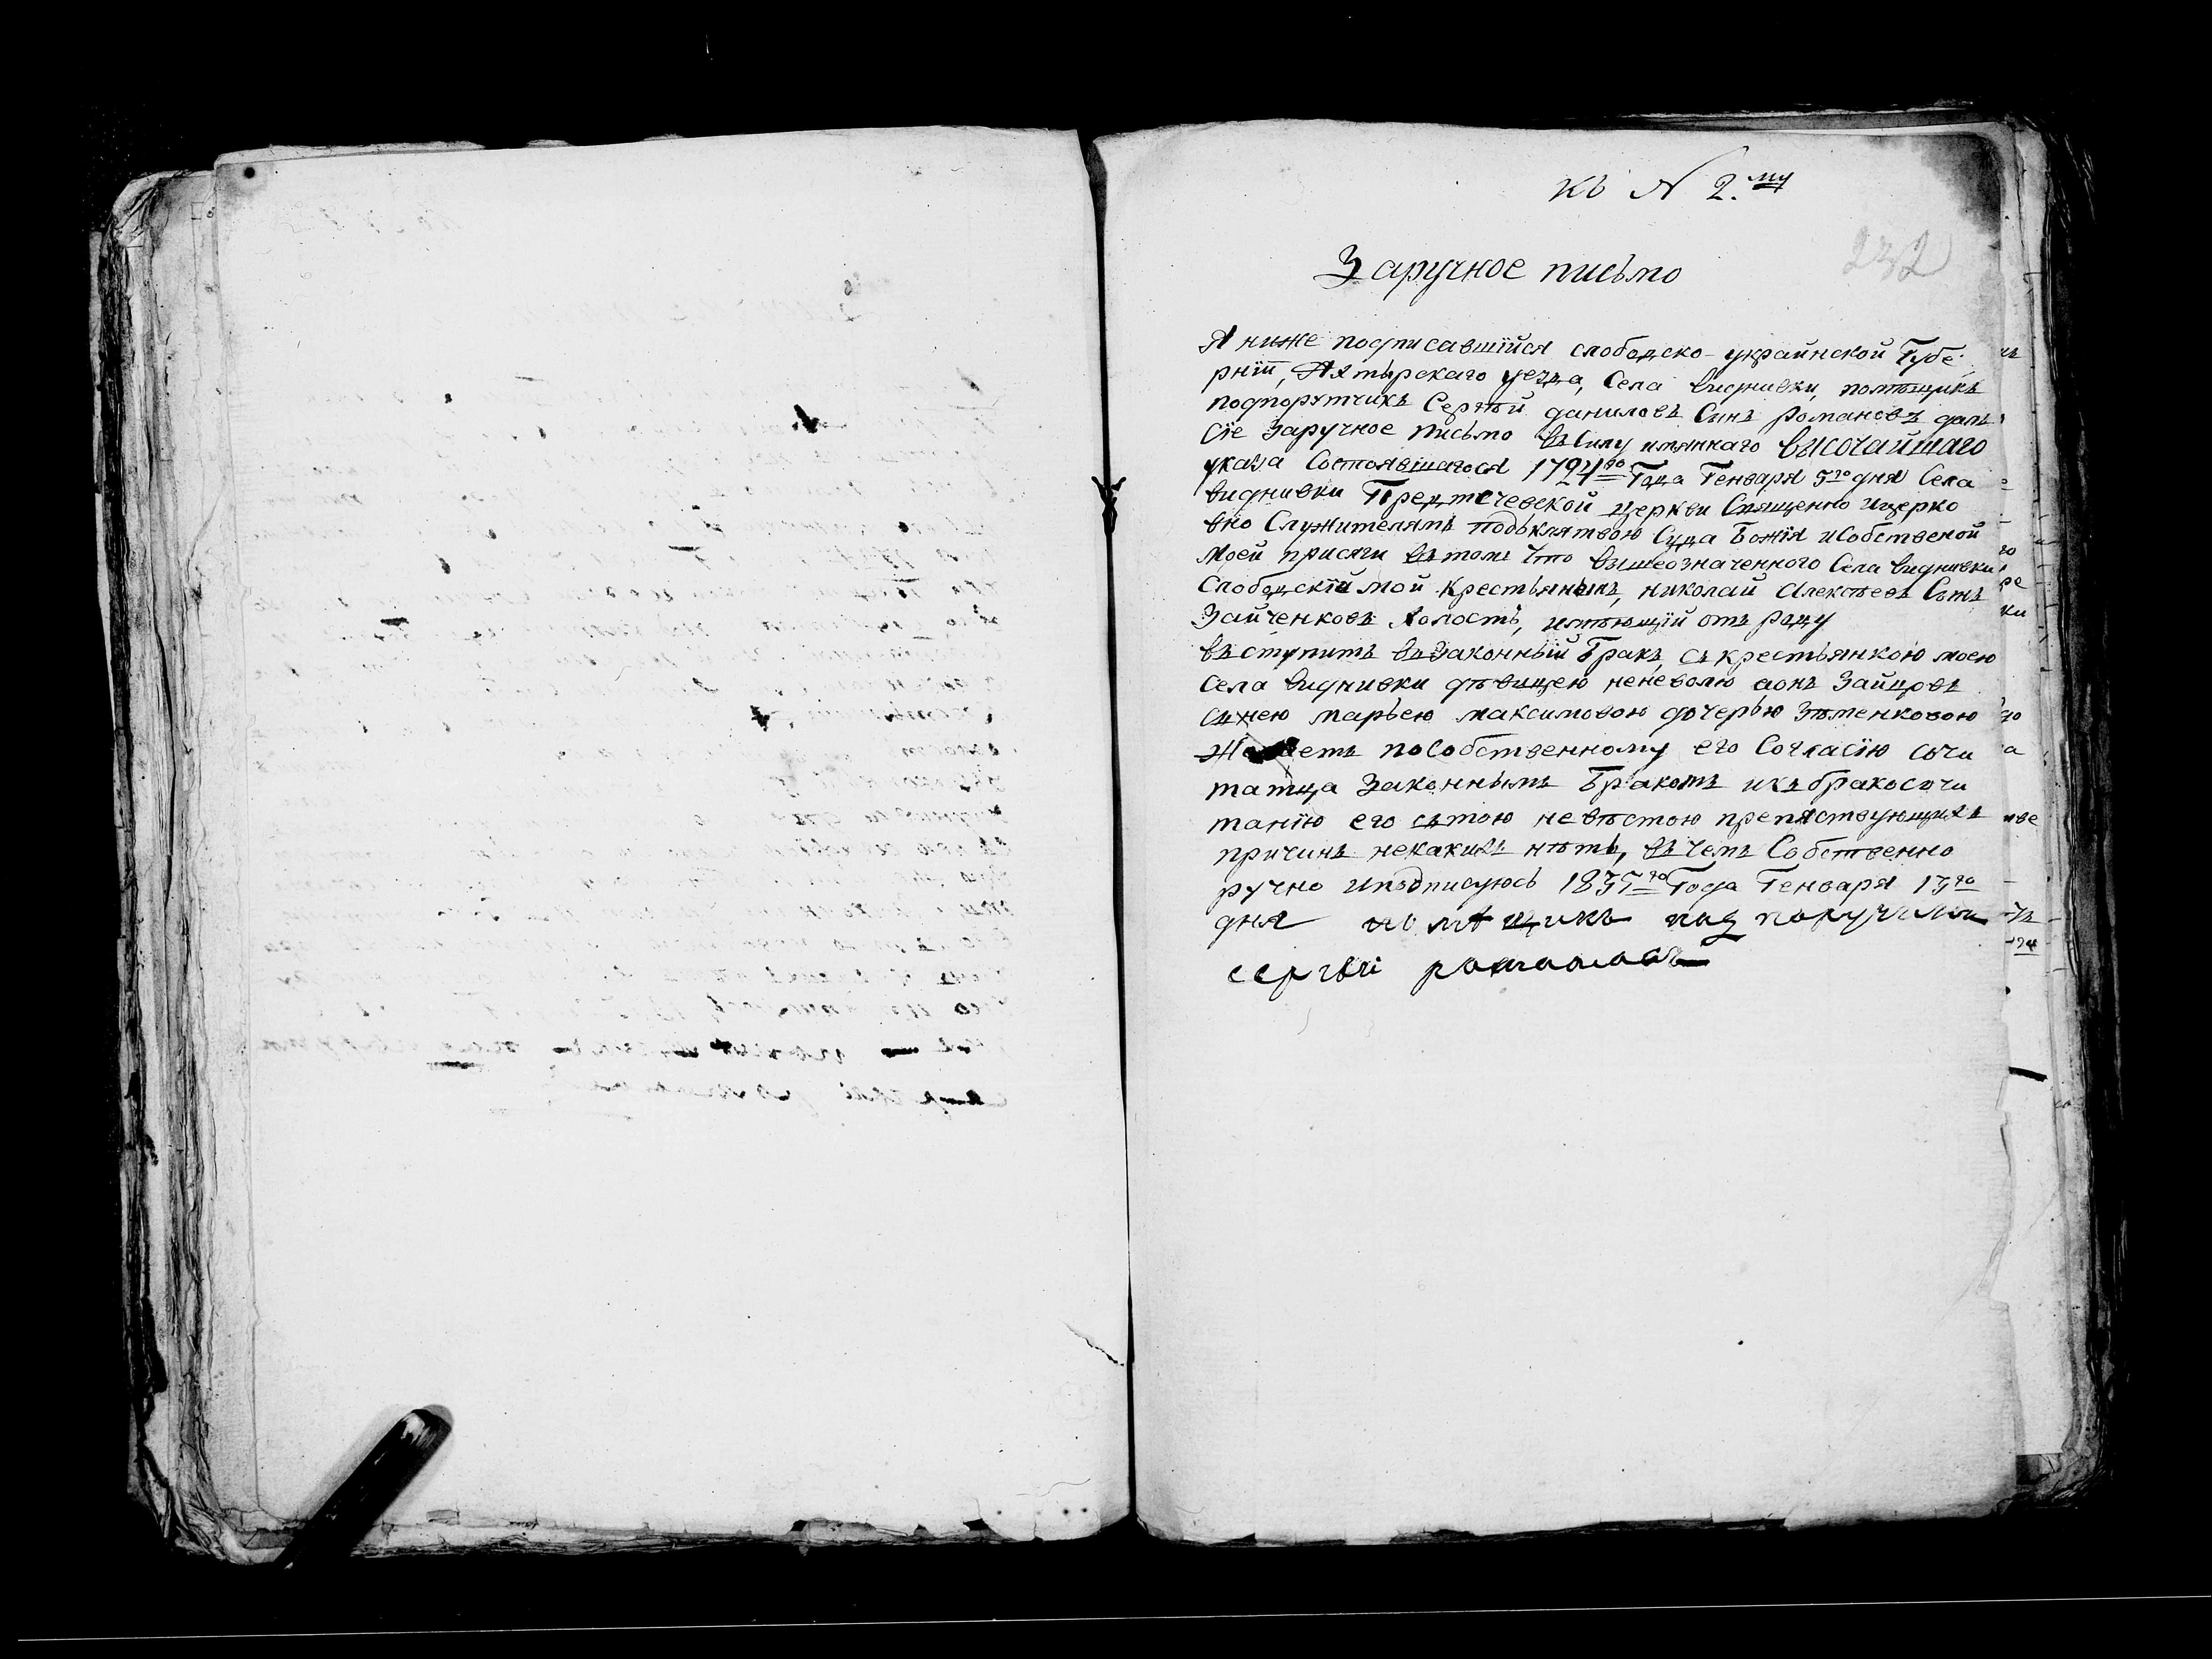 къ N 2.му
232
Заручное письмо
Я ниже подписавшійся слободско-украинской Губе:
рніи, Ахтырскаго уезда, Села видновки, помѣщикъ
подпорутчикъ Сергѣй даниловъ Сынъ романовъ далъ
Сіе заручное письмо въ Силу имяннаго высочайшаго
указа Состоявшагося го Года Генваря 5го дня Села
видновки Предтечевской церкви Священно ицерко
вно Служителямъ подъклятвою Суда Божія иСобственой
моей присяги въ томъ Что вышеозначенного Села видновки
Слободскій мой Крестьянинъ, николай Алексѣевъ Сынъ
Зайченковъ холостъ, имѣющій отъ роду
въступить въ Законный Бракъ, съ крестьянкою моею
Села видновки дѣвицею неневолю аонъ Зайцовъ
съ нею марьею максимовою дочерью
Желаетъ пособственному его Согласію сочи
татца Законнымъ Бракомъ икъ бракосочи
танію его сътою невѣстою препяствующихъ
причинъ некакихъ нѣтъ, въ чемъ Собственно
ручно иподписуюсь Года Генваря 13го
дня помѣщикъ
сергѣй романовъ